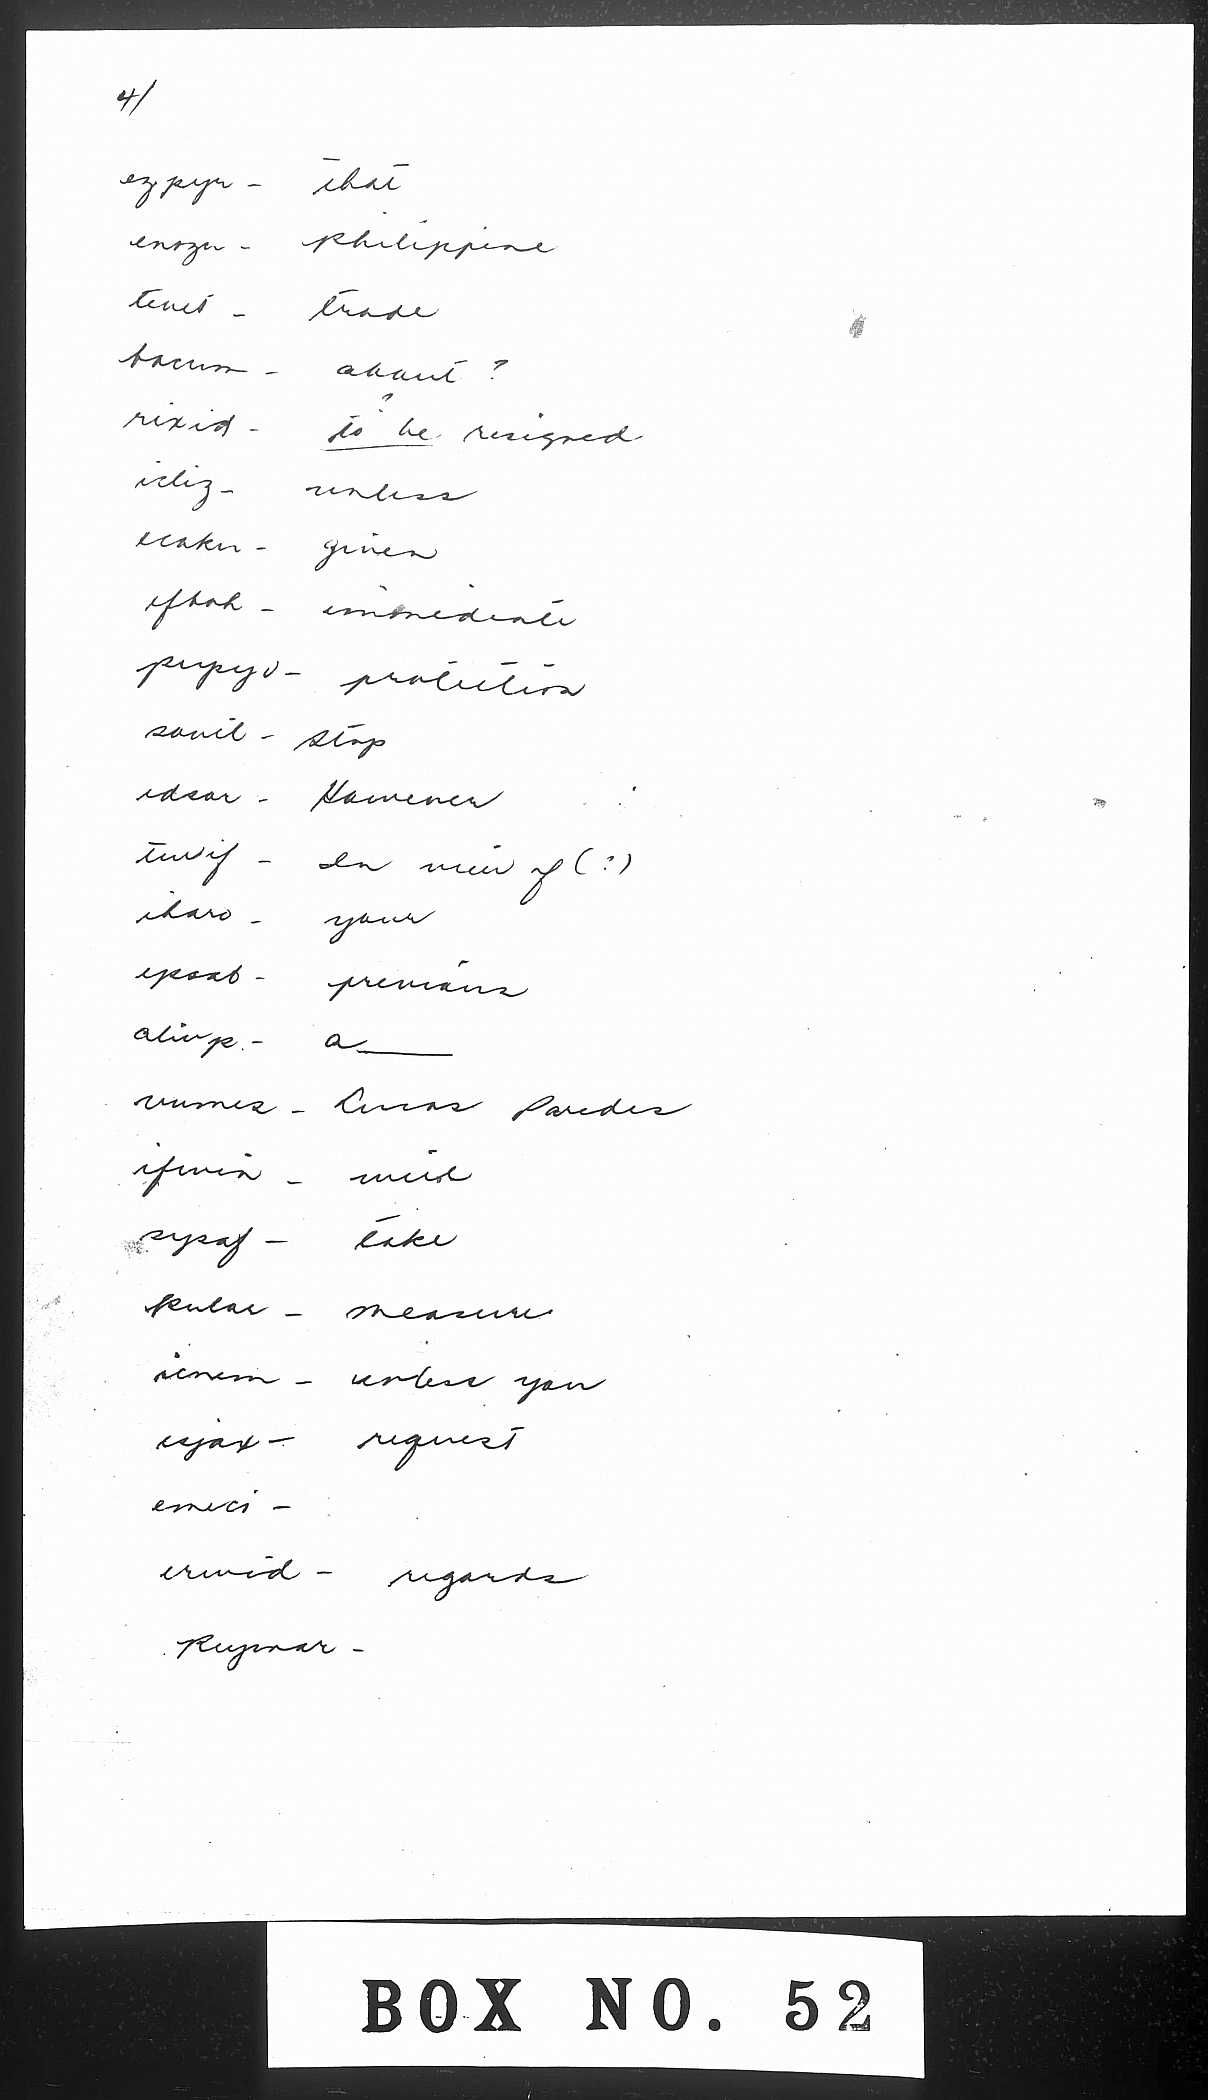 4/
ezpyr - that
enozu - Philippine
tenet - trade
bocum - about ?
?
rixid - to be resigned
icliz - unless
ecoku - given
efboh - immediate
pupyv - protection
sovil - stop
edsor - However
tuvif - In view of (?)
iharo - your
epsab - previous
alivp - a____
vumes - Lucas Paredes
ifwin - will
sysaf - take
kulae - measure
icnem - unless you
esjax - request
emeci -
erwid - regards
Kuymar -
BOX NO. 52